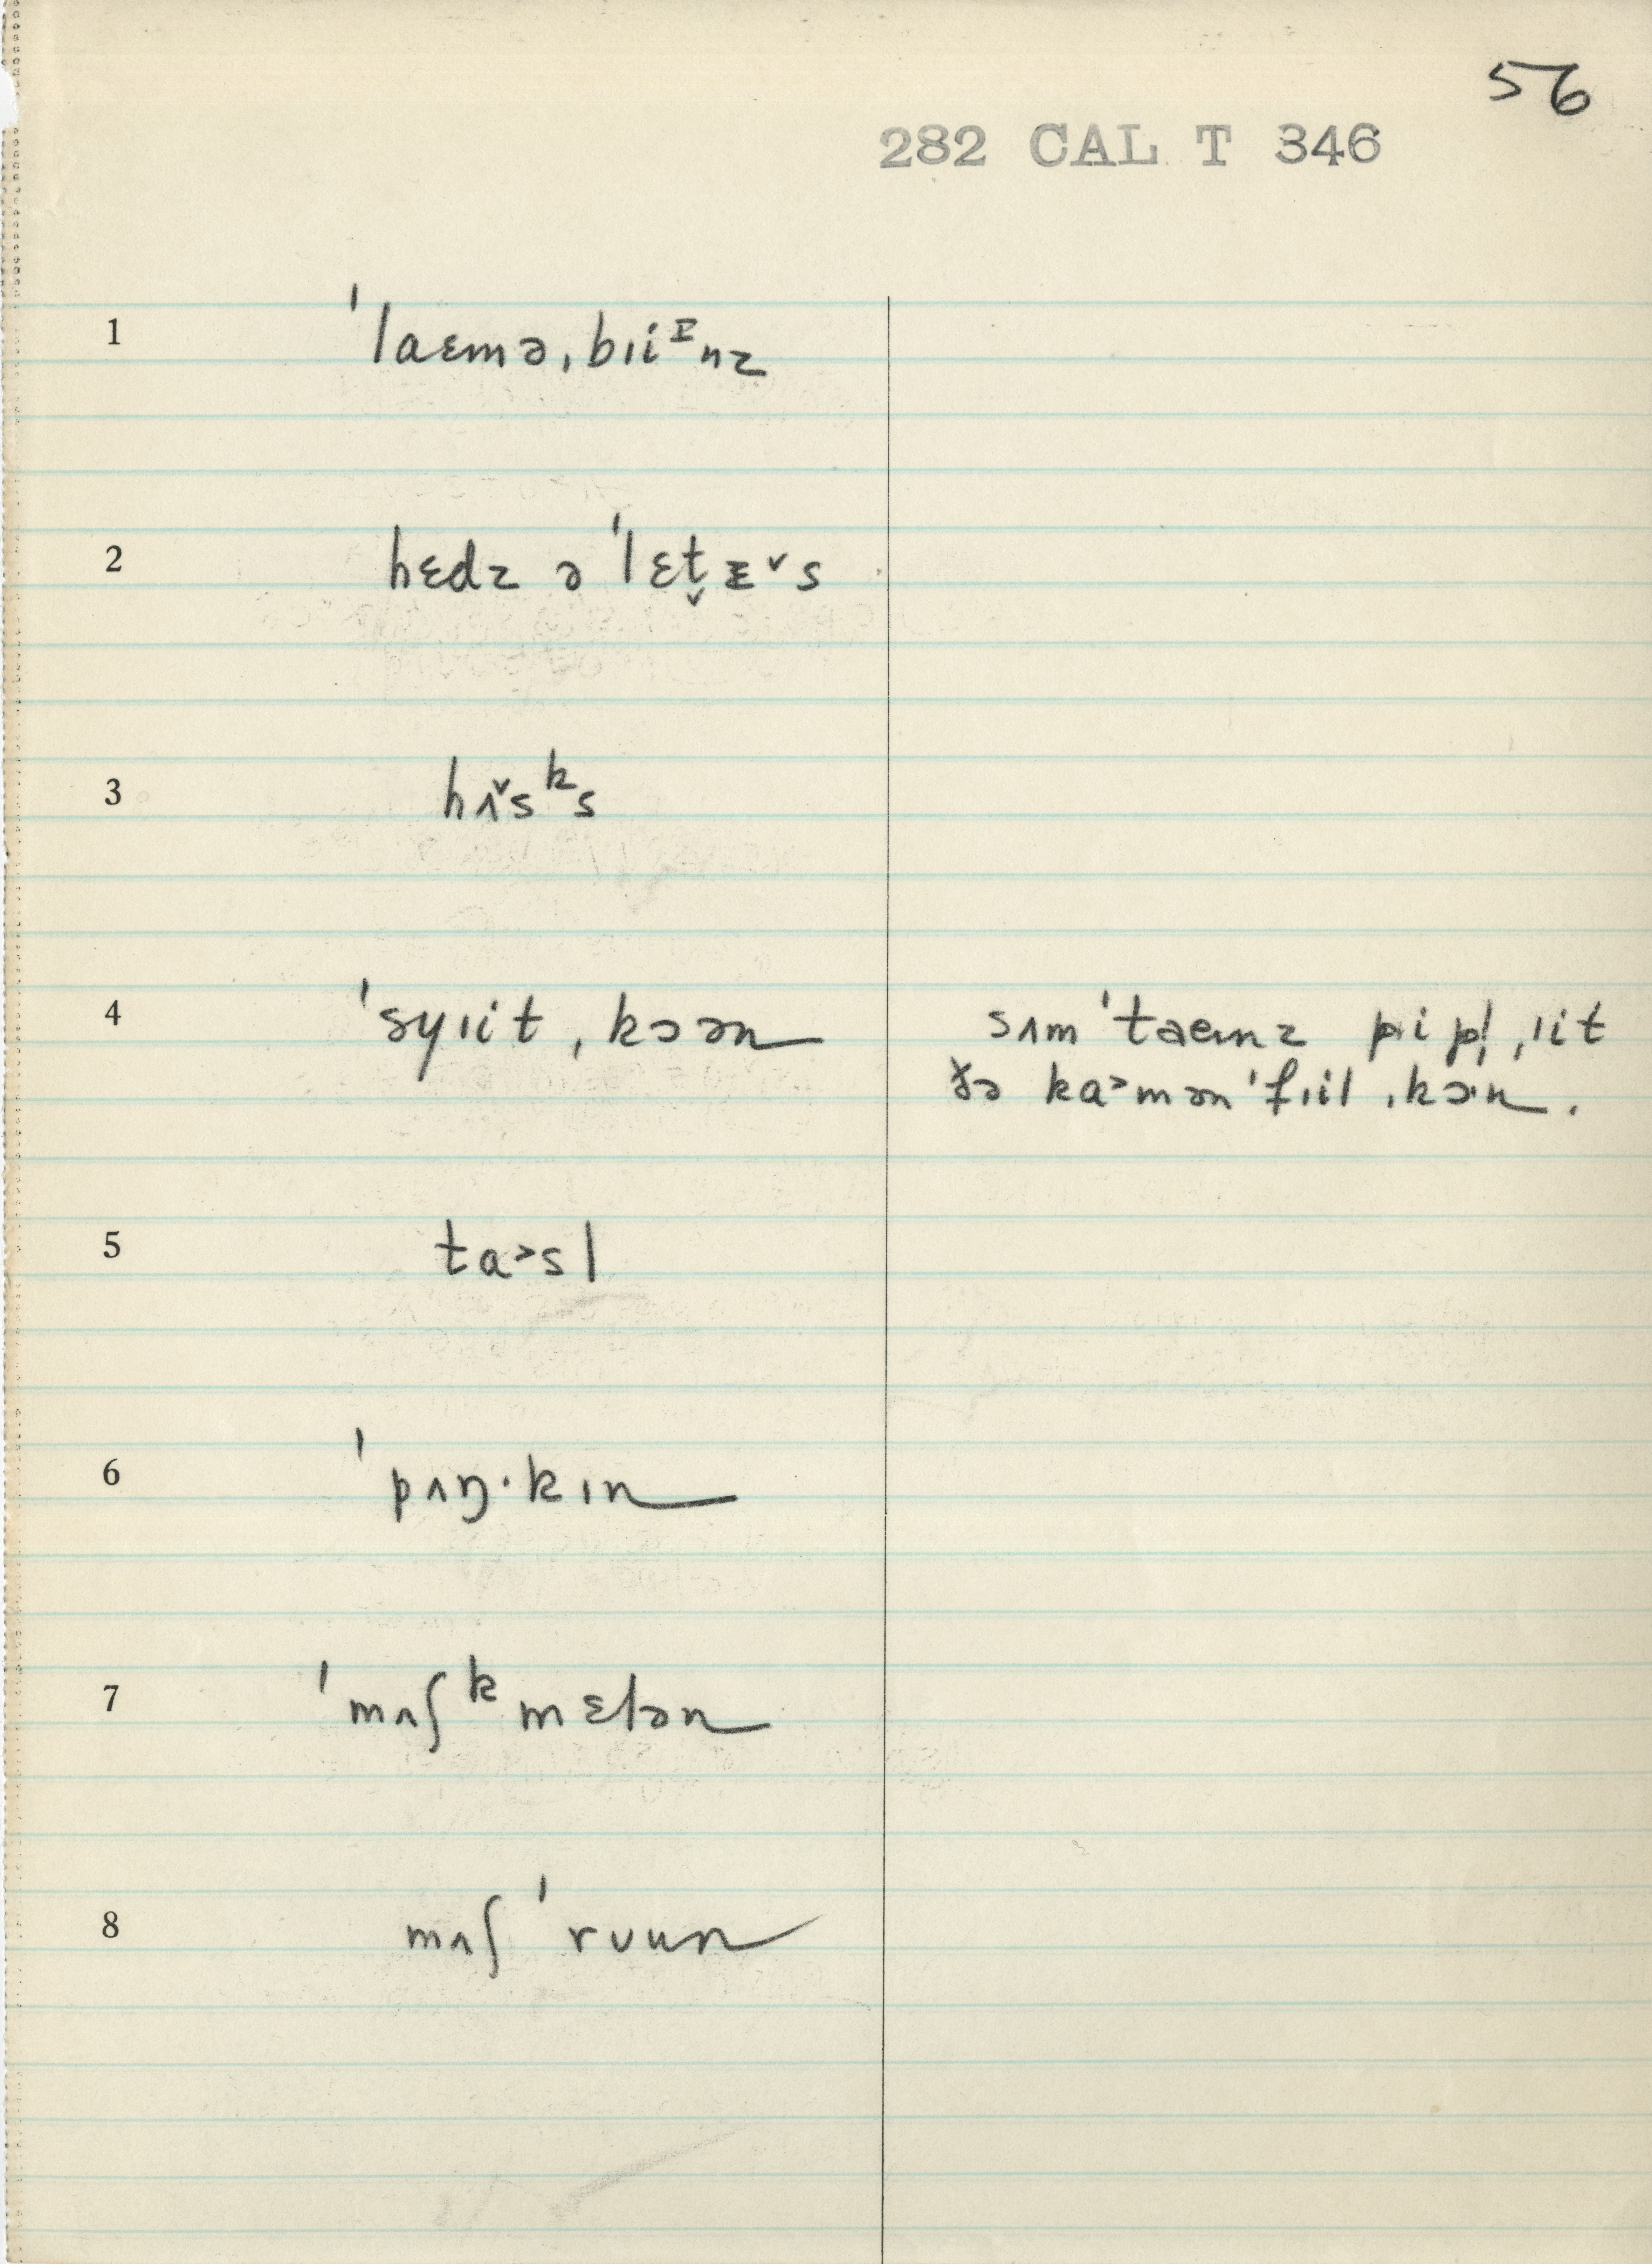 56
282 CAL T 346
1 ˈlaɛmə,bɪiᶦnz
2 hɛdz ə ˈlɛt̬ᵻ˅s
3 hʌ˅sᵏs
4 ˈsyɪit ,kɔən sʌmˈtaemz pipl̩ ,ɪit
ðə ka˃mənˈfɪil ,kɔ·n.
5 ta˃sl
6 ˈpʌŋ·kɪn
7 ˈmʌʃᵏmɛlən
8 mʌʃˈrʊun